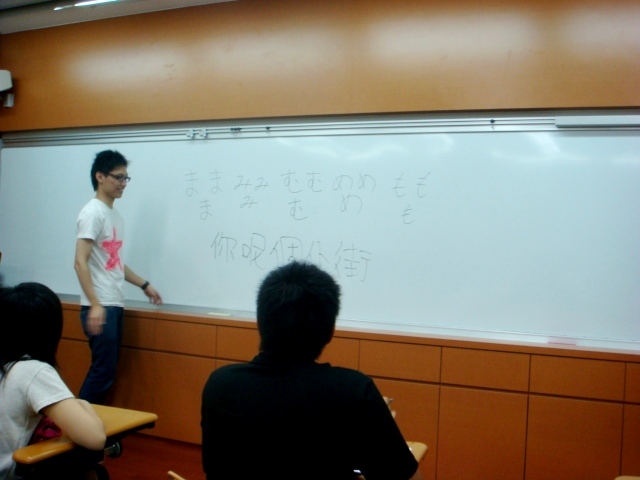 まま みみ むむ めめ もも
ま み む め も
你呢個仆街